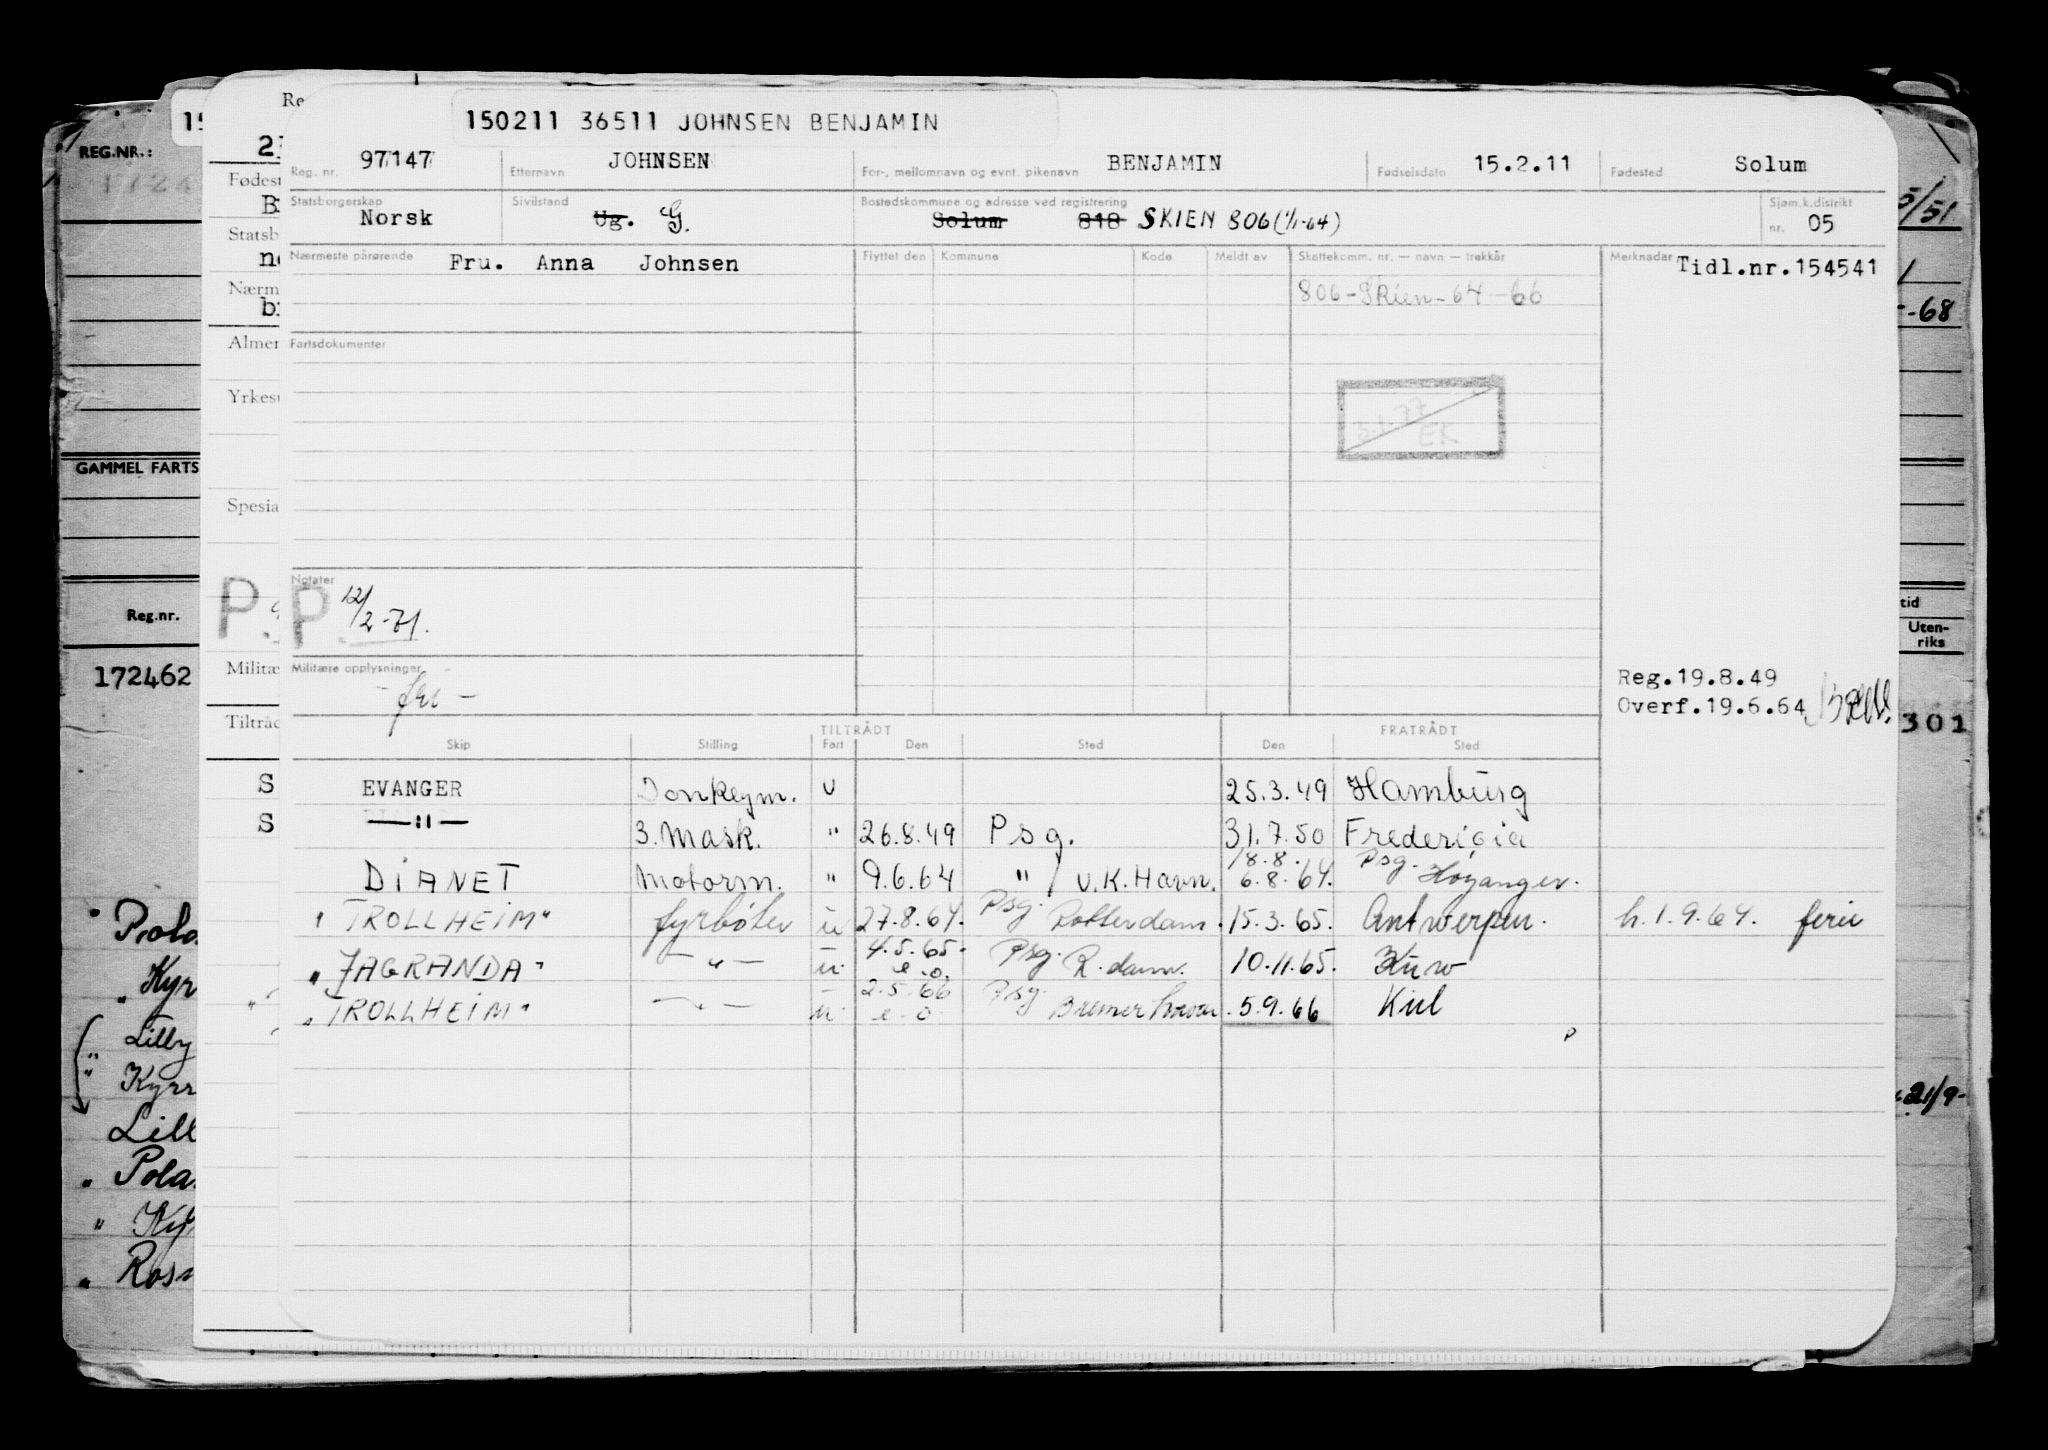 150211 36511 JOHNSEN BENJAMIN
Reg. nr. 97147 Etternavn JOHNSEN For-, mellomnavn og evnt. pikenavn BENJAMIN Fødselsdato 15.2.11 Fødested Solum
Statsborgerskap Norsk Sivilstand Ug. G. Bostedskommune og adresse ved registrering Solum 818 SKIEN 806 (1/1-64) Sjøm.k.distrikt nr. 05
Nærmeste pårørende Fru. Anna Johnsen Flyttet den Kommune Kode Meldt av Skattekomm. nr. — navn — trekkår Merknader Tidl.nr.154541
806-Skien-64-66
Fartsdokumenter
3.1.77
EK
Notater
P 12/2-71.
Militære opplysninger
- fri -
Reg.19.8.49
Overf.19.6.64
TILTRÅDT FRATRÅDT
Skip Stilling Fart Den Sted Den Sted
EVANGER Donkeym. U 25.3.49 Hamburg
—"— 3. Mask. " 26.8.49 Psg. 31.7.50 Fredericia
DIANET Motorm. " 9.6.64 " / U.K.Havn. 18.8. 6.8.64. Psg. Høyanger.
"TROLLHEIM" fyrbøter u 27.8.64. Psg. Rotterdam. 15.3.65. Antwerpen. h.1.9.64. ferie
"JAGRANDA" —"— u. 4.5.65. e.o. Psg. R.dam. 10.11.65.
"TROLLHEIM" —"— u. 2.5.66 e.o. Psg. Bremerhaven. 5.9.66 Kiel
P
15
REG.NR.:
GAMMEL FARTS
Reg.nr.
172462
Re
2
Fødest
Statsb
Nærm
Almer
Yrkes
Spesia
P
Militæ
Tiltråd
S
S
Lilly
Kyrr
Lill
Pola
Ky
5/51
-68
tid
Uten-
riks
301
21/9-